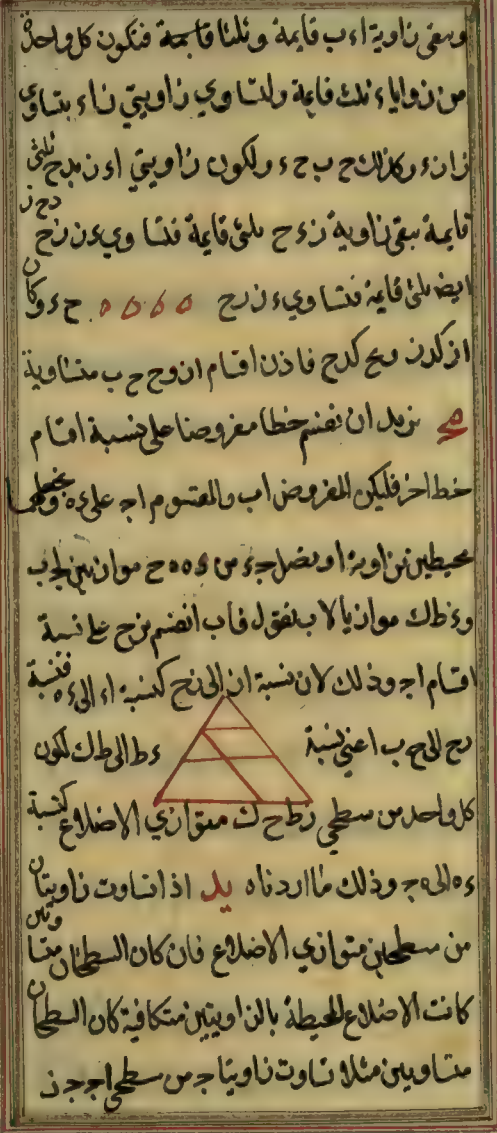 وببقى زاوية اءب قايمة وثلثا قايمة فتكون كل واحدة
من زوايا ء ثلث قايمة ولتساوي زاويتي زاء يتساوى
زا زء وكذلك ح ب ح ء ولكون زاويتي اءز بءح ثلثى
قايمة يبقى زاوية زءح ثلثى قايمة فتساوي ءز زح
دح ز
ايضا ثلثى قايمة فتساوي ءز زح ح ء وكان
از كءز وبح كءح فاذن اقسام از زح ح ب متساوية
نريد ان نقسم خطا مفروضا على نسبة اقسام
خط اخر فليكن المفروض اب والمقسوم اج على ء ه ونخطهما
محيطين بزاوية ا ونصل جب ومن ء ه ه ح موازيين لجب
وء ط ك موازيا لاب نقول فاب انقسم بزح على نسبة
اقسام اج وذلك لان نسبة از الى زح كنسبة اء الى ء ه فنسبة
زح الى ح ب اعني نسبة ء ط الى ط ك لكون
كل واحد من سطحي زط ح ك متوازي الاضلاع كنسبة
ء ه الى ه ج وذلك ما اردناه يد اذا تساوت زاويتان
من سطحين متوازي الاضلاع فان كان السطحان متساويين
كانت الاضلاع المحيطة بالزاويتين متكافية كان السطحان
متساويين مثلا تساوت زاويتا ج من سطحي اج ج ز